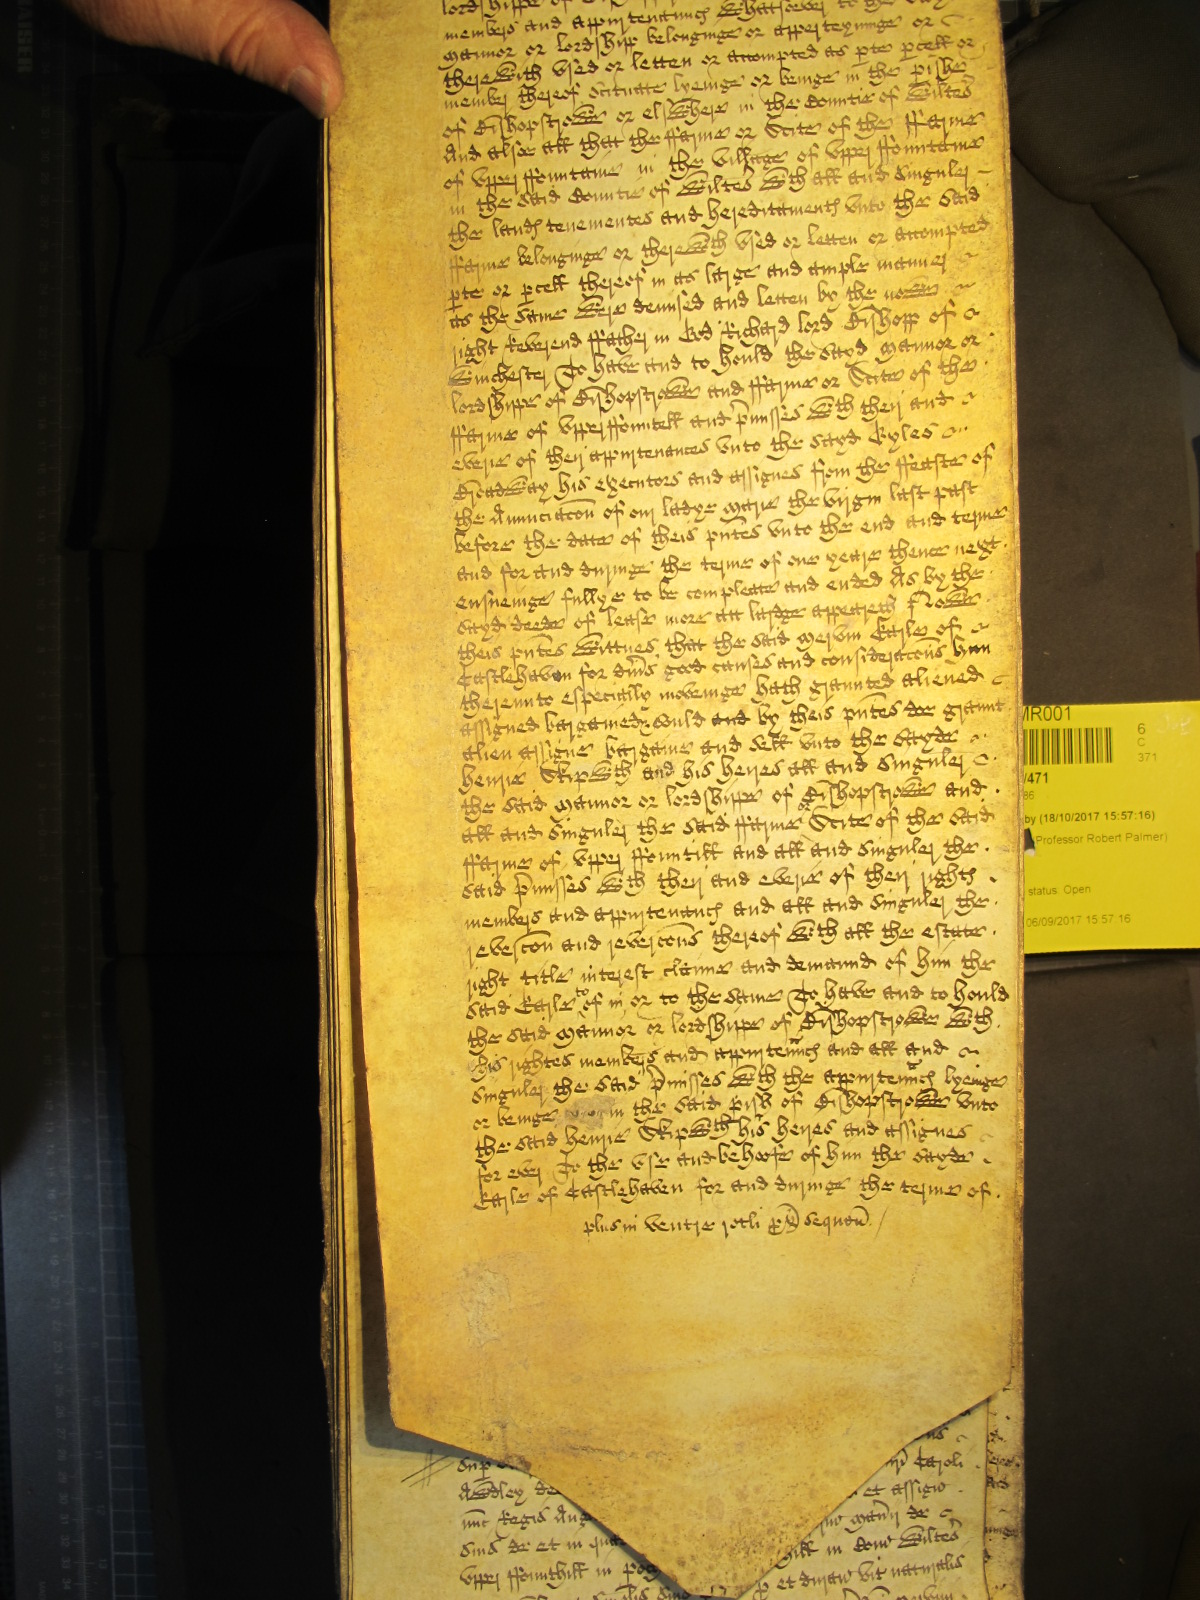 lordshippe of
members and appurtenancs whatsoever to the said
mannor or lordship belonginge or apperteyninge or
therewith used or letten or accompted as pte pcell or
member thereof scituate lyeinge or beinge in the pishe
of Bishopstrowe or elswhere in the Countie of Wiltes
And alsoe all that the ffarme or Scite of the ffarme
of upper ffountaine in the village of upper ffountaine
in the said Countie of Wiltes wth all and singuler
the lands tenementes and hereditaments unto the said
ffarme belonginge or therewth used or letten or accompted
pte or pcell thereof in as large and ample manner
as the same were demised and letten by the nowe
right Reverend ffather in God Richard lord Bishopp of
Winchester To have and to hould the sayd mannor or
lordshipe of Bishopstrowe and ffarme or Scite of the
ffarme of upper ffountell and pmisses wth their and
everie of their appurtenances unto the sayd Gyles
Broadway his executors and assignes from the ffeaste of
the Annunciacon of our ladye marie the virgin last past
before the date of theis pntes unto the end and terme
and for and duringe the terme of one yeare thence next
ensueinge fullye to be compleate and ended As by the
sayd deede of lease more att lardge appeareth Nowe
theis pntes wittnes that the said Mervin Earle of
Castlehaven for divs good causes and consideracons him
thereunto especially moveinge hath graunted aliened
assigned bargained sould and by theis pntes doe graunt
alien assigne bargaine and sell unto the sayde
henrie Skipwth and his heires all and singuler
the said mannor or lordshippe of Bishopstrowe and
all and singuler the said ffarme or Scite of the said
ffarme of upper ffountill and all and singuler the
said pmisses wth their and everie of their rights
members and appurtenancs and all and singuler the
revercon and revercons thereof wth all the estate
right title interest claime and demaund of him the
said Earle to of in or to the same To have and to hould
the said mannor or lordshippe of Bishopstrowe wth
his rightes members and appurtenncs and all and
singuler the said pmisses wth the appurtenncs lyeinge
or beinge in the said pish of Bishopstrowe unto
the said henrie Skipwth his heires and assignes
for ever To the use and behoofe of him the sayde
Earle of Castlehaven for and duringe the terme of
plus in ventre rotli sequen
Caroli
Awdley et assign
nuc Regis Ang manii de
sius de et in Com Wiltes
upper ffounthill in et durant vit naturalis
MR001
6
C
371
/471
86
by (18/10/2017 15:57:16)
Professor Robert Palmer)
status Open
06/09/2017 15:57:16